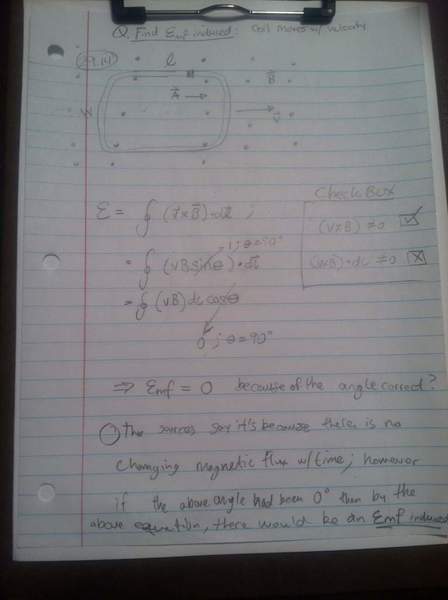 Q. Find Emf induced: Coil moves w/ velocity
29.14
l
B
A
W
V
Check Box
ε = ∮ (V×B)·dl ;
(V×B) ≠ 0 ☑
1; θ=90°
= ∮ (vBsinθ)·dl
(V×B)·dl ≠ 0 ☒
= ∮ (vB) dl cosθ
0 ; θ=90°
⇒ Emf = 0 because of the angle correct?
The sources say it's because there is no
changing magnetic flux w/time; however
if the above angle had been 0° then by the
above equation, there would be an Emf induced